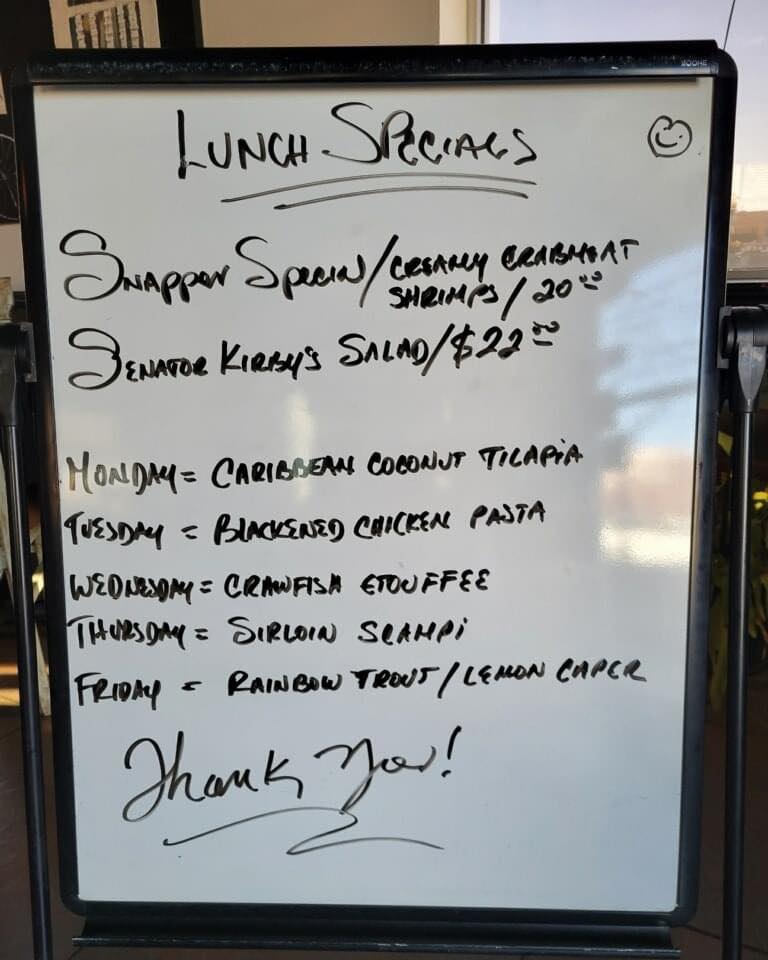 BOONE
LUNCH SPECIALS
SNAPPER SPECIAL/CREAMY CRABMEAT
SHRIMPS/20.00
SENATOR KIRBY'S SALAD/$22.00
MONDAY= CARIBBEAN COCONUT TILAPIA
TUESDAY = BLACKENED CHICKEN PASTA
WEDNESDAY= CRAWFISH ETOUFFEE
THURSDAY= SIRLOIN SCAMPI
FRIDAY = RAINBOW TROUT/LEMON CAPER
Thank You!